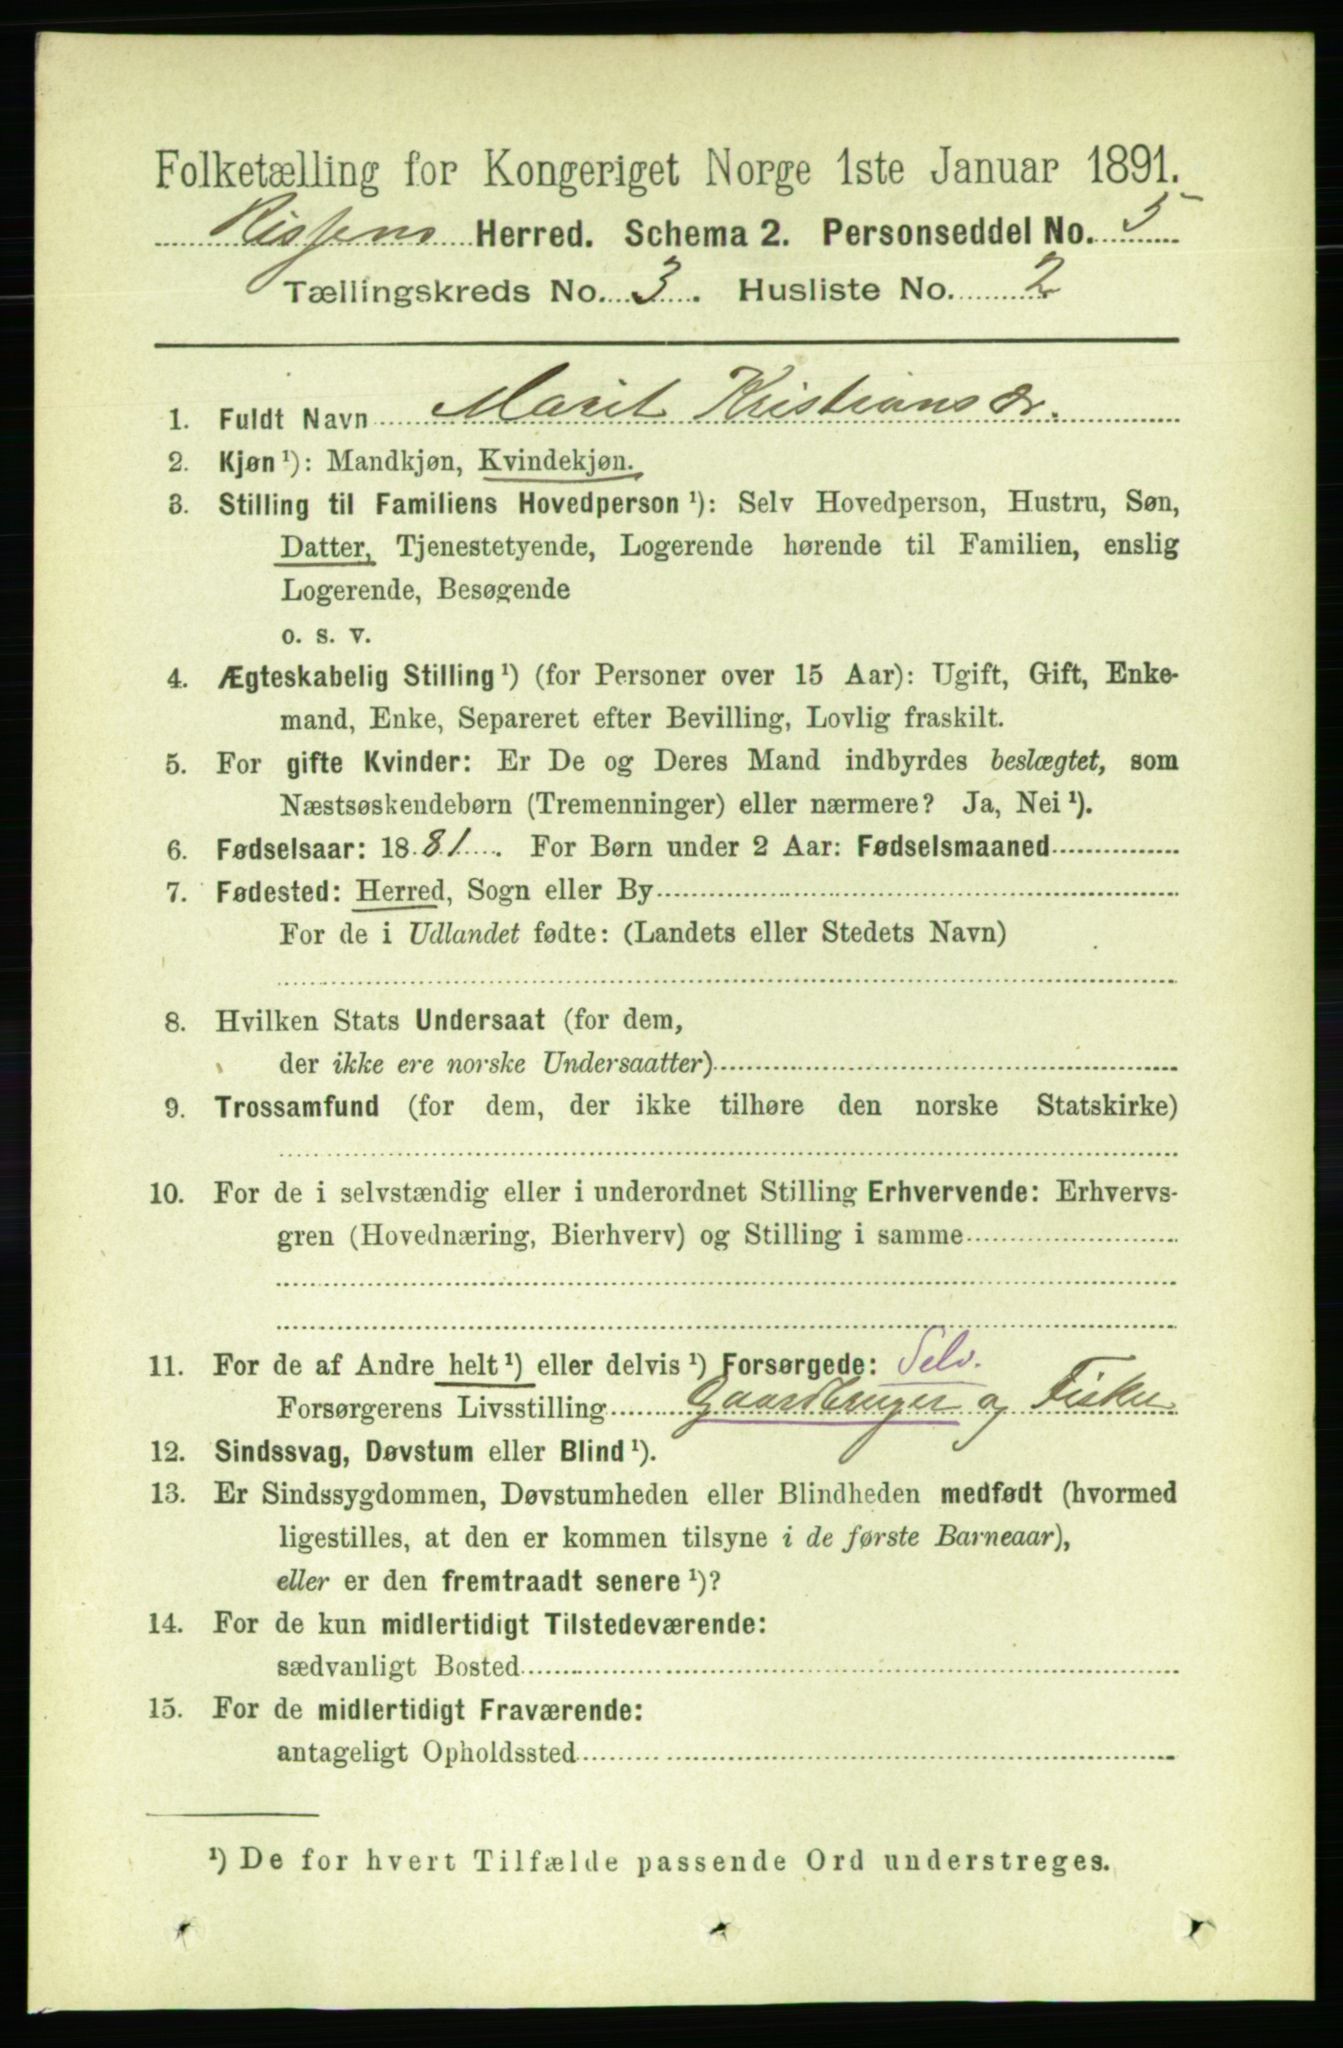 Folketælling for Kongeriget Norge 1ste Januar 1891.
Rissens Herred. Schema 2. Personseddel No. 5
Tællingskreds No. 3. Husliste No. 2
1. Fuldt Navn Marit Kristiansdr.
2. Kjøn ¹): Mandkjøn, Kvindekjøn.
3. Stilling til Familiens Hovedperson ¹): Selv Hovedperson, Hustru, Søn,
Datter, Tjenestetyende, Logerende hørende til Familien, enslig
Logerende, Besøgende
o. s. v.
4. Ægteskabelig Stilling ¹) (for Personer over 15 Aar): Ugift, Gift, Enke-
mand, Enke, Separeret efter Bevilling, Lovlig fraskilt.
5. For gifte Kvinder: Er De og Deres Mand indbyrdes beslægtet, som
Næstsøskendebørn (Tremenninger) eller nærmere? Ja, Nei ¹).
6. Fødselsaar: 1881. For Børn under 2 Aar: Fødselsmaaned
7. Fødested: Herred, Sogn eller By
For de i Udlandet fødte: (Landets eller Stedets Navn)
8. Hvilken Stats Undersaat (for dem,
der ikke ere norske Undersaatter)
9. Trossamfund (for dem, der ikke tilhøre den norske Statskirke)
10. For de i selvstændig eller i underordnet Stilling Erhvervende: Erhvervs-
gren (Hovednæring, Bierhverv) og Stilling i samme
11. For de af Andre helt ¹) eller delvis ¹) Forsørgede: Selv.
Forsørgerens Livsstilling Gaardbruger og Fisker
12. Sindssvag, Døvstum eller Blind ¹).
13. Er Sindssygdommen, Døvstumheden eller Blindheden medfødt (hvormed
ligestilles, at den er kommen tilsyne i de første Barneaar),
eller er den fremtraadt senere ¹)?
14. For de kun midlertidigt Tilstedeværende:
sædvanligt Bosted
15. For de midlertidigt Fraværende:
antageligt Opholdssted
¹) De for hvert Tilfælde passende Ord understreges.